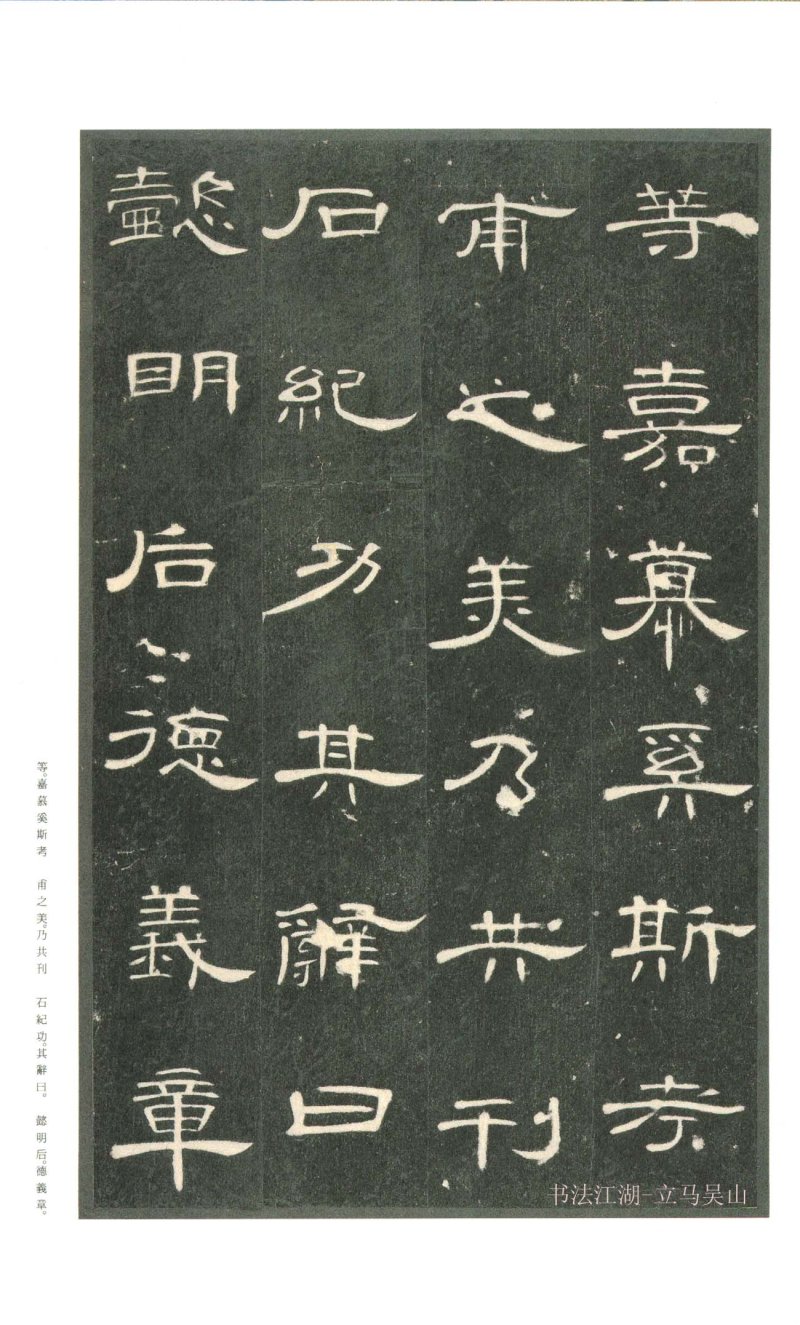 等嘉慕奚斯考
甫之美乃共刊
石紀功其辭曰
懿明后德義章
等。嘉慕奚斯考 甫之美。乃共刊 石紀功。其辭曰。 懿明后。德義章。
书法江湖-立马吴山